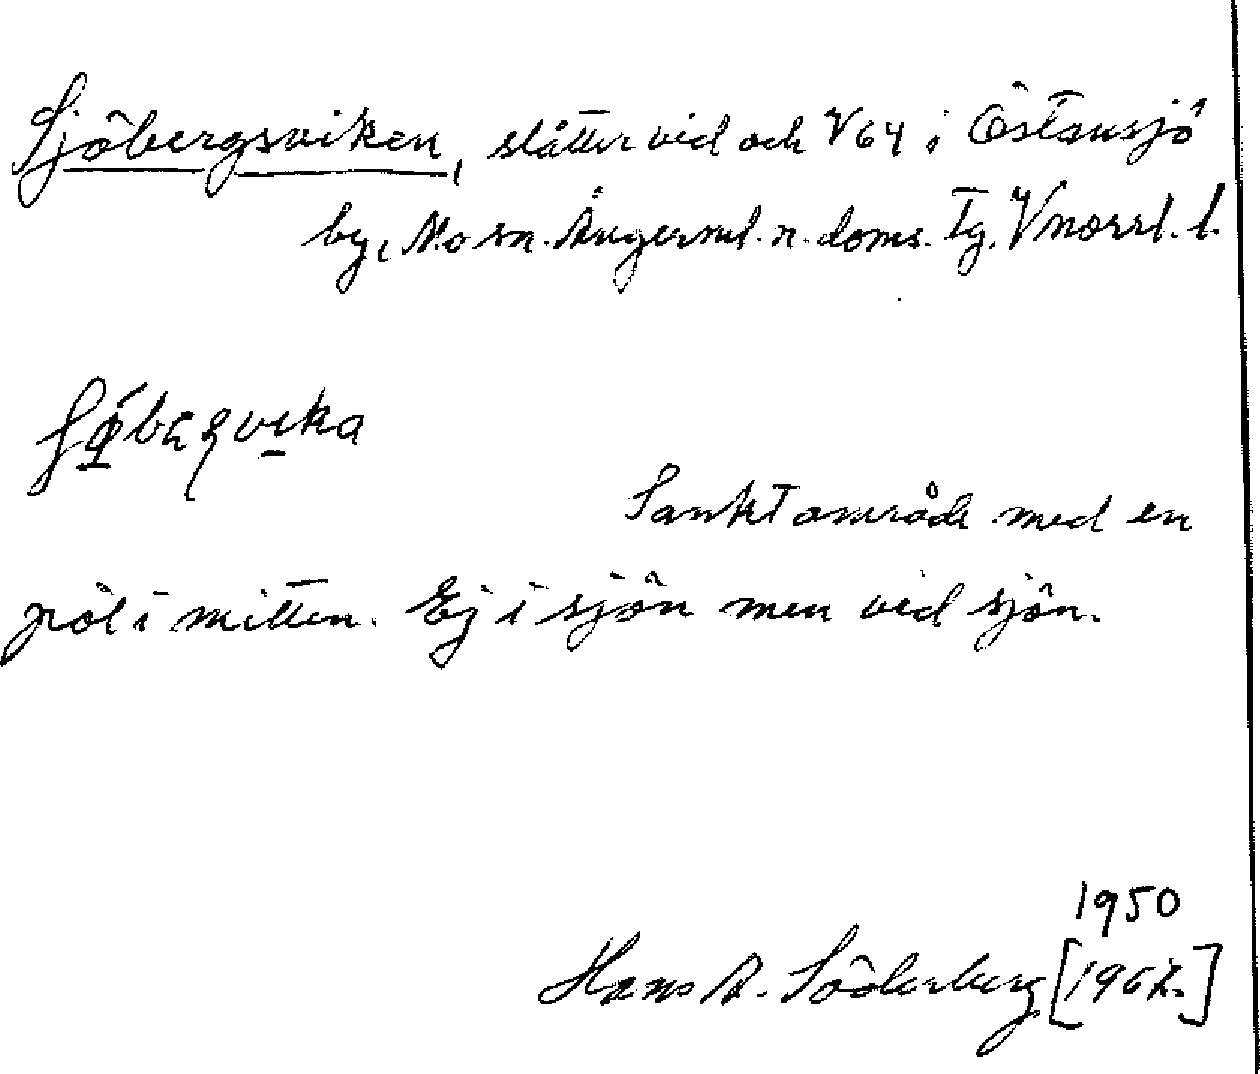 Sjöbergsviken, slåtter vid och V64 i Östansjö
by, No sn. Ångerml. n. doms. Tg. Vnorrl. l.
Sankt område med en
pöl i mitten. Ej i sjön men vid sjön.
1950
Hans A. Söderberg [1962.]